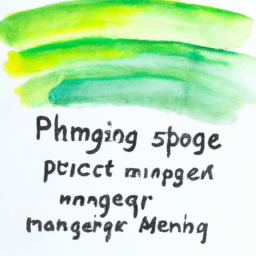 Phmging spoge
pticct mınpgen
nnngeqr
mongergr Mennq